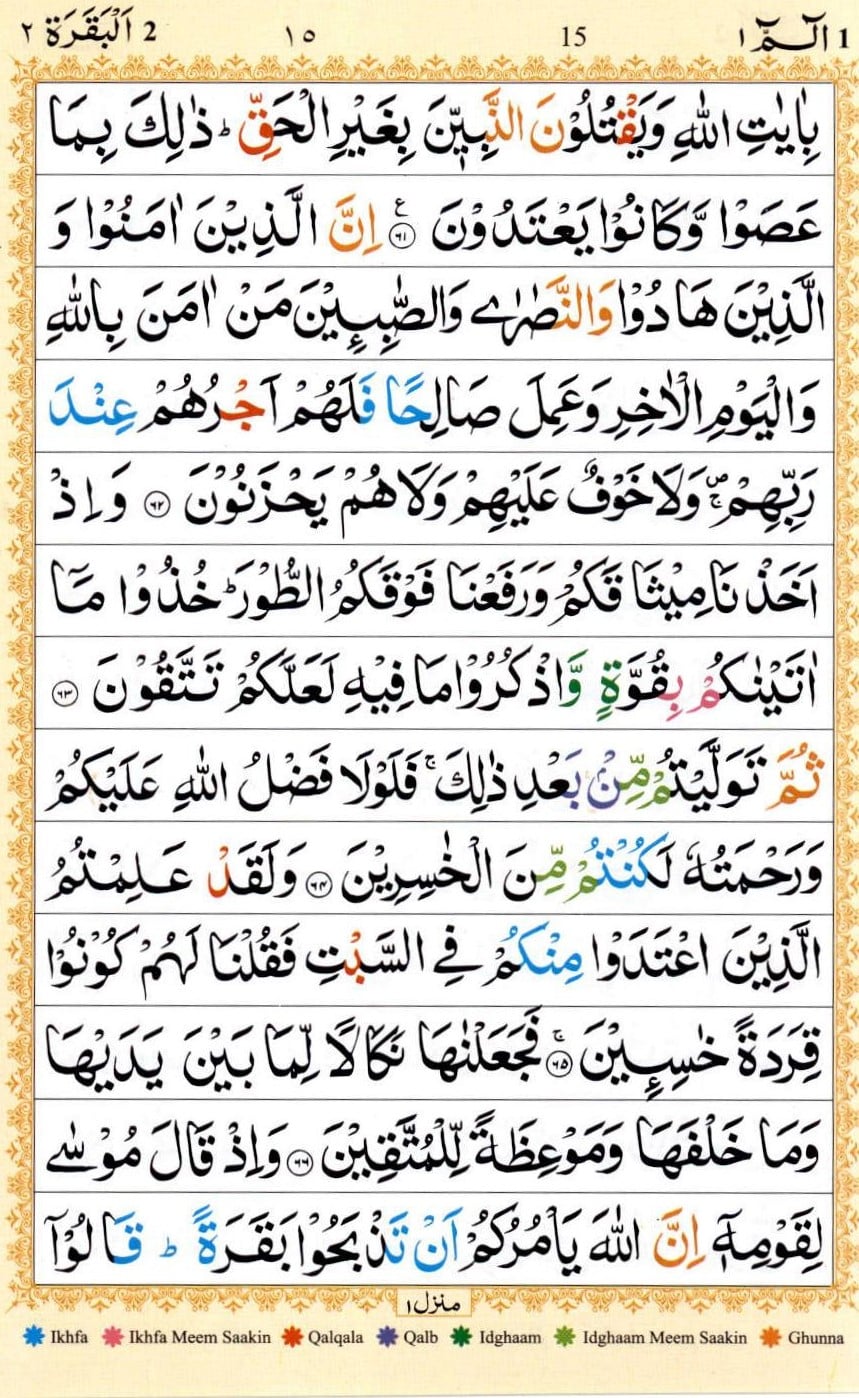 1 الٓـمّٓ ١ 15 ١٥ 2 اَلْبَقَرَة ٢
بِاٰيٰتِ اللّٰهِ وَيَقْتُلُوْنَ النَّبِيّٖنَ بِغَيْرِ الْحَقِّ ؕ ذٰلِكَ بِمَا
عَصَوْا وَّكَانُوْا يَعْتَدُوْنَ ﴿٦١﴾ ع اِنَّ الَّذِيْنَ اٰمَنُوْا وَ
الَّذِيْنَ هَادُوْا وَالنَّصٰرٰى وَالصّٰبِـِٕيْنَ مَنْ اٰمَنَ بِاللّٰهِ
وَالْيَوْمِ الْاٰخِرِ وَعَمِلَ صَالِحًا فَلَهُمْ اَجْرُهُمْ عِنْدَ
رَبِّهِمْ ۪ۚ وَلَا خَوْفٌ عَلَيْهِمْ وَلَا هُمْ يَحْزَنُوْنَ ﴿٦٢﴾ وَاِذْ
اَخَذْنَا مِيْثَاقَكُمْ وَرَفَعْنَا فَوْقَكُمُ الطُّوْرَ ؕ خُذُوْا مَآ
اٰتَيْنٰكُمْ بِقُوَّةٍ وَّاذْكُرُوْا مَا فِيْهِ لَعَلَّكُمْ تَتَّقُوْنَ ﴿٦٣﴾
ثُمَّ تَوَلَّيْتُمْ مِّنْۢ بَعْدِ ذٰلِكَ ۚ فَلَوْلَا فَضْلُ اللّٰهِ عَلَيْكُمْ
وَرَحْمَتُهٗ لَكُنْتُمْ مِّنَ الْخٰسِرِيْنَ ﴿٦٤﴾ وَلَقَدْ عَلِمْتُمُ
الَّذِيْنَ اعْتَدَوْا مِنْكُمْ فِى السَّبْتِ فَقُلْنَا لَهُمْ كُوْنُوْا
قِرَدَةً خٰسِـِٕيْنَ ۚ﴿٦٥﴾ فَجَعَلْنٰهَا نَكَالًا لِّمَا بَيْنَ يَدَيْهَا
وَمَا خَلْفَهَا وَمَوْعِظَةً لِّلْمُتَّقِيْنَ ﴿٦٦﴾ وَاِذْ قَالَ مُوْسٰى
لِقَوْمِهٖٓ اِنَّ اللّٰهَ يَاْمُرُكُمْ اَنْ تَذْبَحُوْا بَقَرَةً ؕ قَالُوْٓا
منزل ١
Ikhfa Ikhfa Meem Saakin Qalqala Qalb Idghaam Idghaam Meem Saakin Ghunna